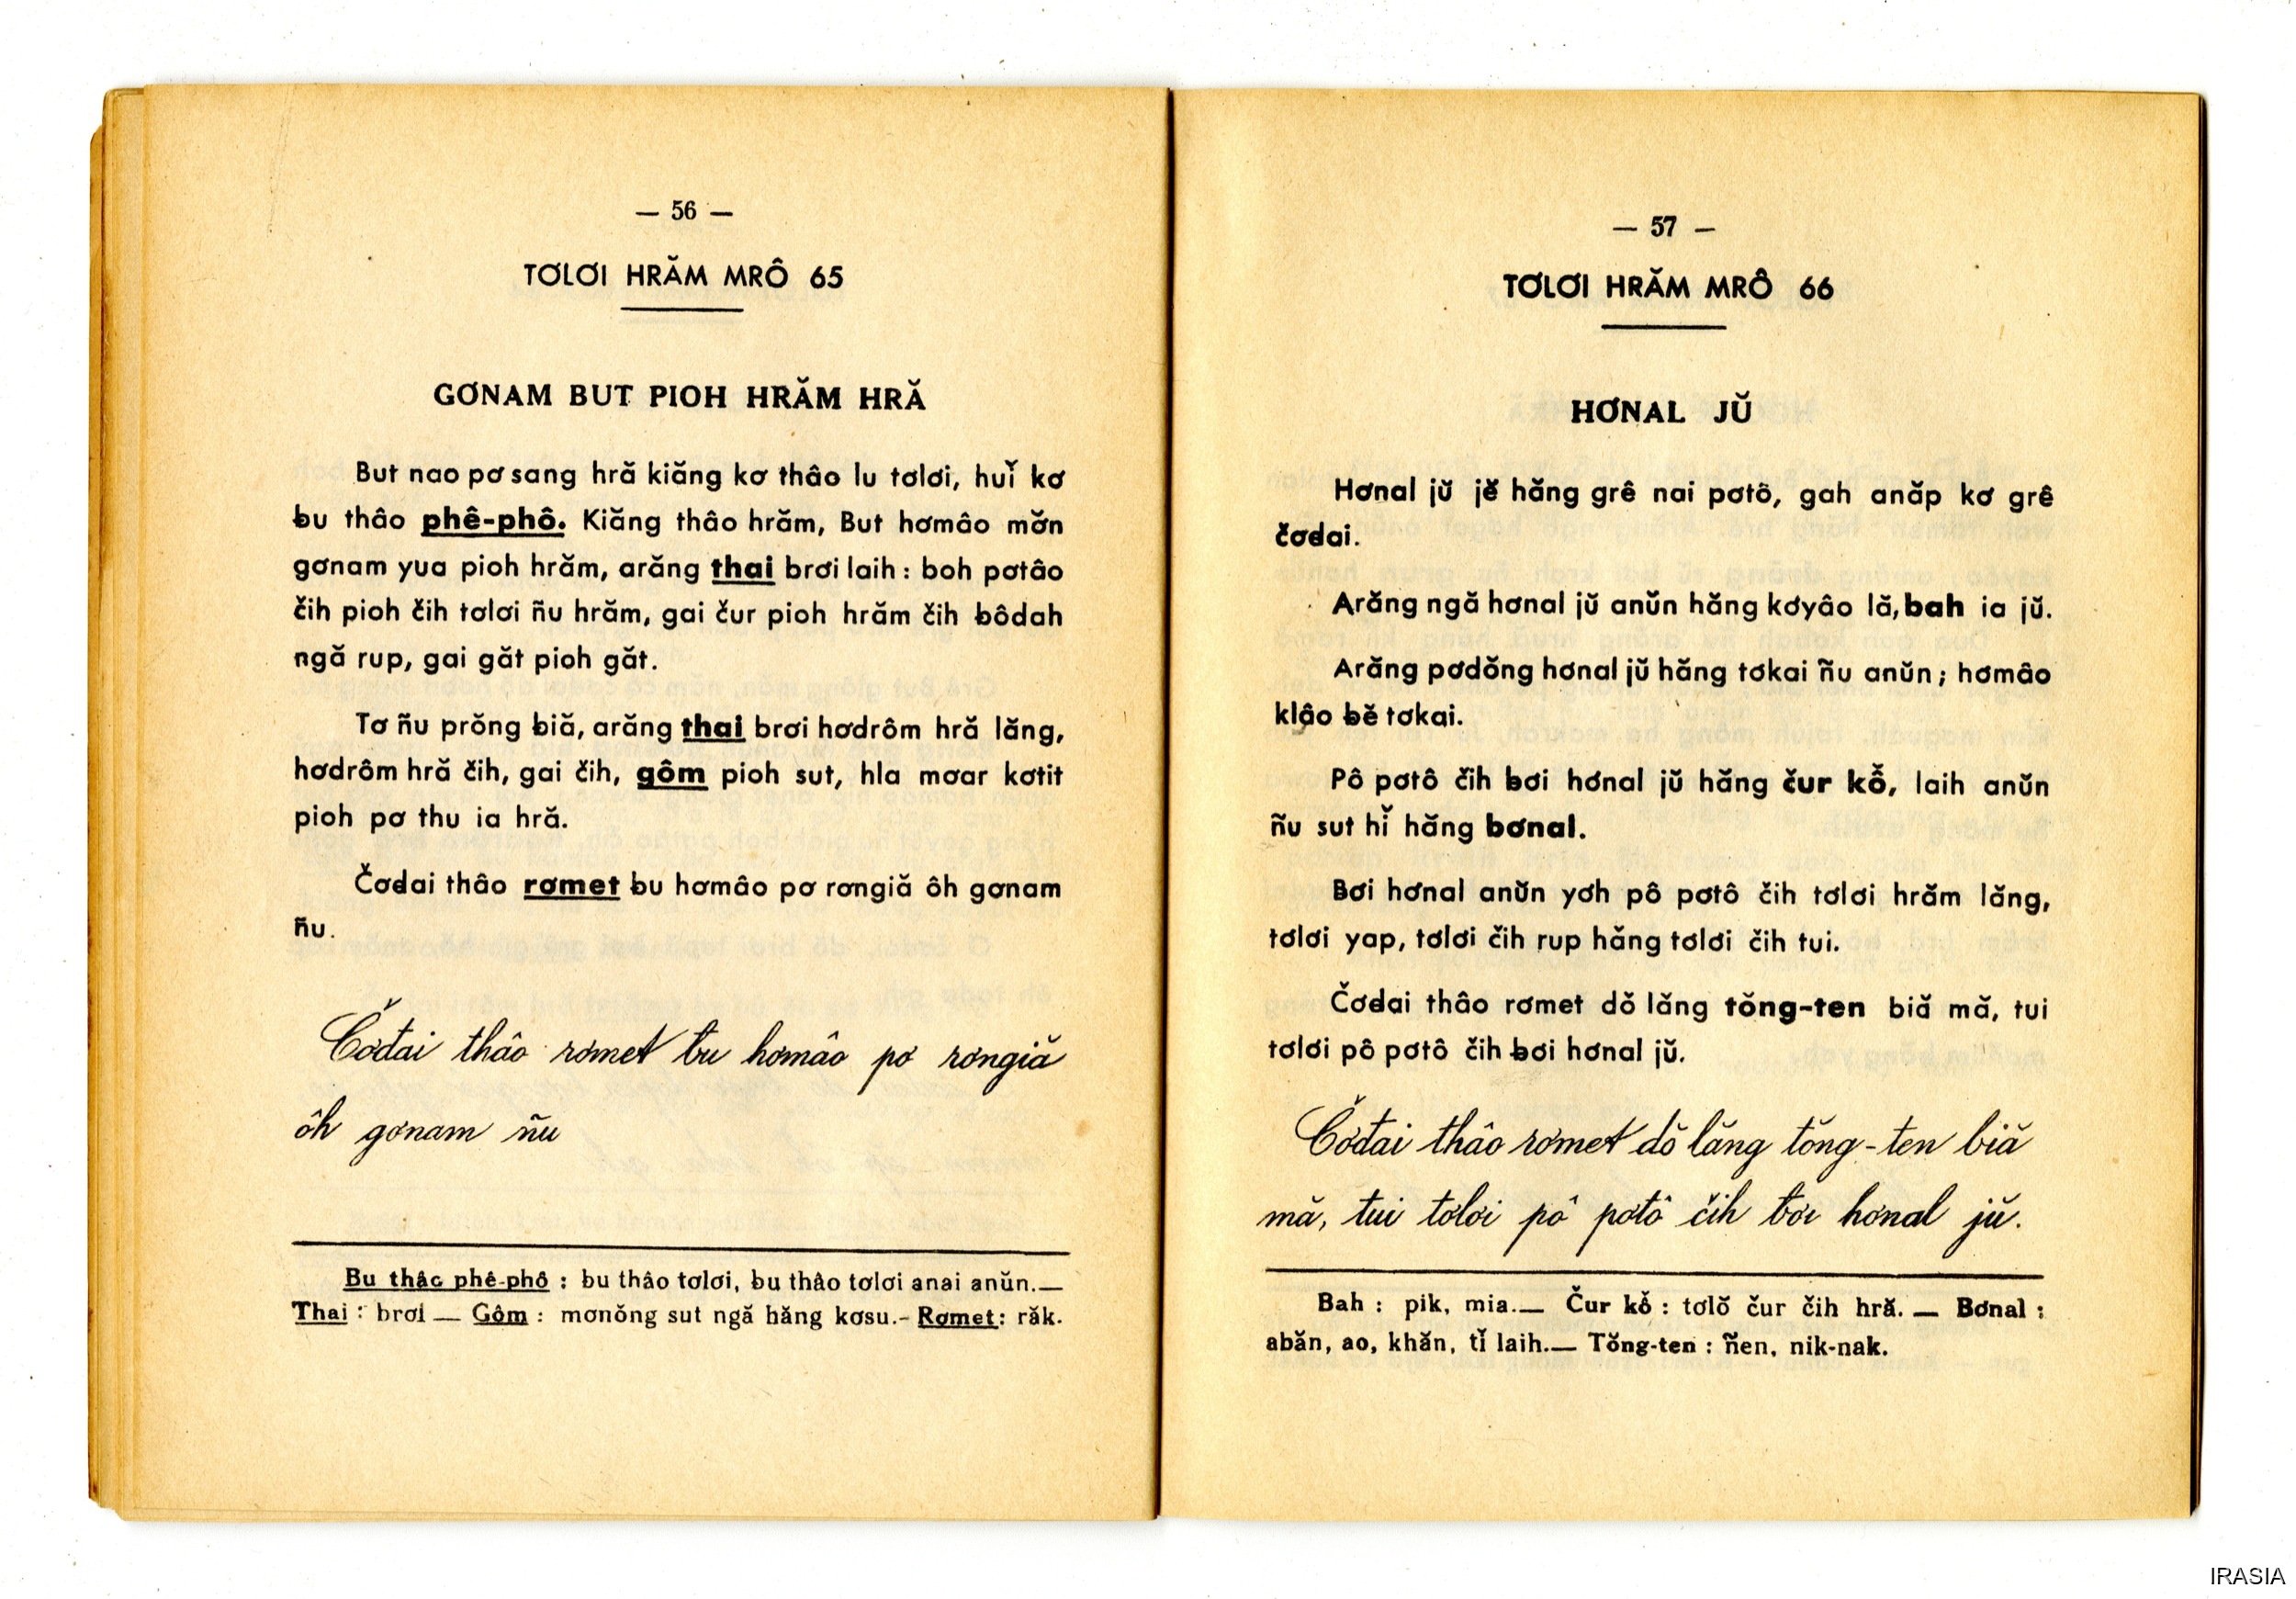 — 56 —
TƠLƠI HRĂM MRÔ 65
GƠNAM BUT PIOH HRĂM HRĂ
But nao pơ sang hră kiăng kơ thâo lu tơlơi, huĭ kơ
ƀu thâo phê-phô. Kiăng thâo hrăm, But hơmâo mơ̆n
gơnam yua pioh hrăm, arăng thai brơi laih : boh pơtâo
čih pioh čih tơlơi ñu hrăm, gai čur pioh hrăm čih bôdah
ngă rup, gai găt pioh găt.
Tơ ñu prŏng ƀiă, arăng thai brơi hơdrôm hră lăng,
hơdrôm hră čih, gai čih, gôm pioh sut, hla mơar kơtit
pioh pơ thu ia hră.
Čơđai thâo rơmet ƀu hơmâo pơ rơngiă ôh gơnam
ñu.
Čơđai thâo rơmet ƀu hơmâo pơ rơngiă
ôh gơnam ñu
Bu thâo phê-phô : ƀu thâo tơlơi, ƀu thâo tơlơi anai anŭn.—
Thai : brơi — Gôm : mơnŏng sut ngă hăng kơsu.- Rơmet : răk.
— 57 —
TƠLƠI HRĂM MRÔ 66
HƠNAL JŬ
Hơnal jŭ jĕ hăng grê nai pơtô, gah anăp kơ grê
čơđai.
Arăng ngă hơnal jŭ anŭn hăng kơyâo lă, bah ia jŭ.
Arăng pơdŏng hơnal jŭ hăng tơkai ñu anŭn ; hơmâo
klâo ƀĕ tơkai.
Pô pơtô čih ƀơi hơnal jŭ hăng čur kô̆, laih anŭn
ñu sut hĭ hăng bơnal.
Ƀơi hơnal anŭn yơh pô pơtô čih tơlơi hrăm lăng,
tơlơi yap, tơlơi čih rup hăng tơlơi čih tui.
Čơđai thâo rơmet dŏ lăng tŏng-ten biă mă, tui
tơlơi pô pơtô čih ƀơi hơnal jŭ.
Čơđai thâo rơmet dŏ lăng tŏng-ten biă
mă, tui tơlơi pô pơtô čih ƀơi hơnal jŭ.
Bah : pik, mia.— Čur kô̆ : tơlŏ čur čih hră. — Bơnal :
abăn, ao, khăn, tĭ laih.— Tŏng-ten : ñen, nik-nak.
IRASIA